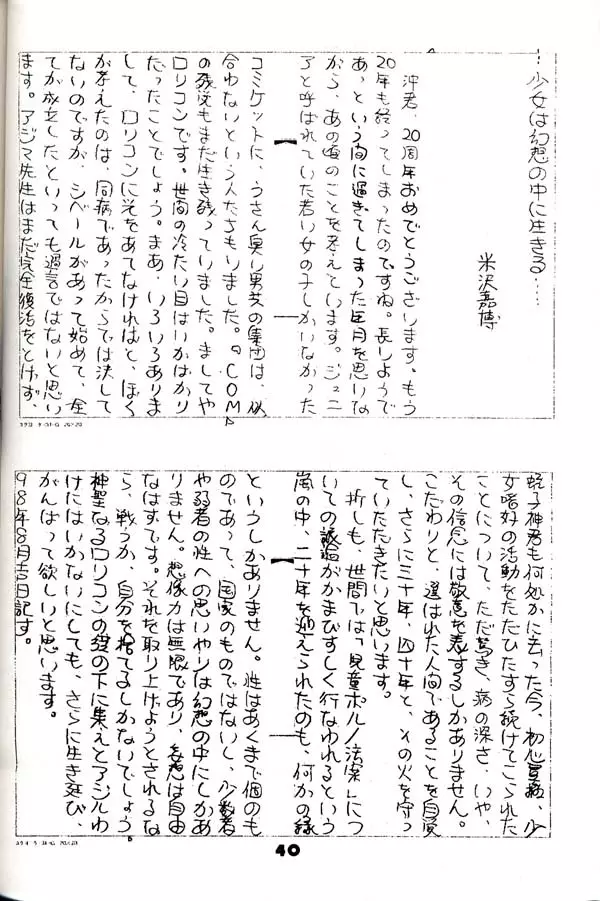 少女は幻想の中に生きる……
米沢嘉博
沖君、20周年おめでとうございます。もう
20年も経ってしまったのですね。長しようで
あっという間に過ぎてしまった年月を思いな
がら、あの頃のことを考えています。ジュニ
アと呼ばれていた若い女の子しかいなかった
コミケットに、うさん臭い男共の集団は、似
合わないという人たちもいました。『COM』
の残党もまだ生き残っていました。ましてや
ロリコンです。世間の冷たい目はいかばかり
だったことでしょう。まあ、いろいろありま
して、ロリコンに光をあてなければと、ぼく
が考えたのは、同病であったからでは決して
ないのですが、シベールがあって始めて、全
てが成立したといっても過言ではないと思い
ます。アジマ先生はまだ完全復活をとげず、
蛭子神君も何処かに去った今、初心冒瀆、少
女嗜好の活動をただひたすら続けてこられた
ことについて、ただ驚き、病の深さ、いや、
その信念には敬意を表するしかありません。
こだわりと、選ばれた人間であることを自覚
し、さらに三十年、四十年と、その火を守っ
ていただきたいと思います。
折しも、世間では「児童ポルノ法案」につ
いての議論がかまびすしく行なわれるという
嵐の中、二十年を迎えられたのも、何かの縁
というしかありません。性はあくまで個のも
のであって、国家のものではないし、少数者
や弱者の性への思いやりは幻想の中にしかあ
りません。想像力は無限であり、妄想は自由
なはずです。それを取り上げようとされるな
ら、戦うか、自分を捨てるしかないでしょう。
神聖なるロリコンの旗の下に集えとアジルわ
けにはいかないにしても、さらに生き延び、
がんばって欲しいと思います。
98年8月吉日記す。
コクヨ ケ-31-G 20×20
コクヨ ケ-31-G 20×20
40